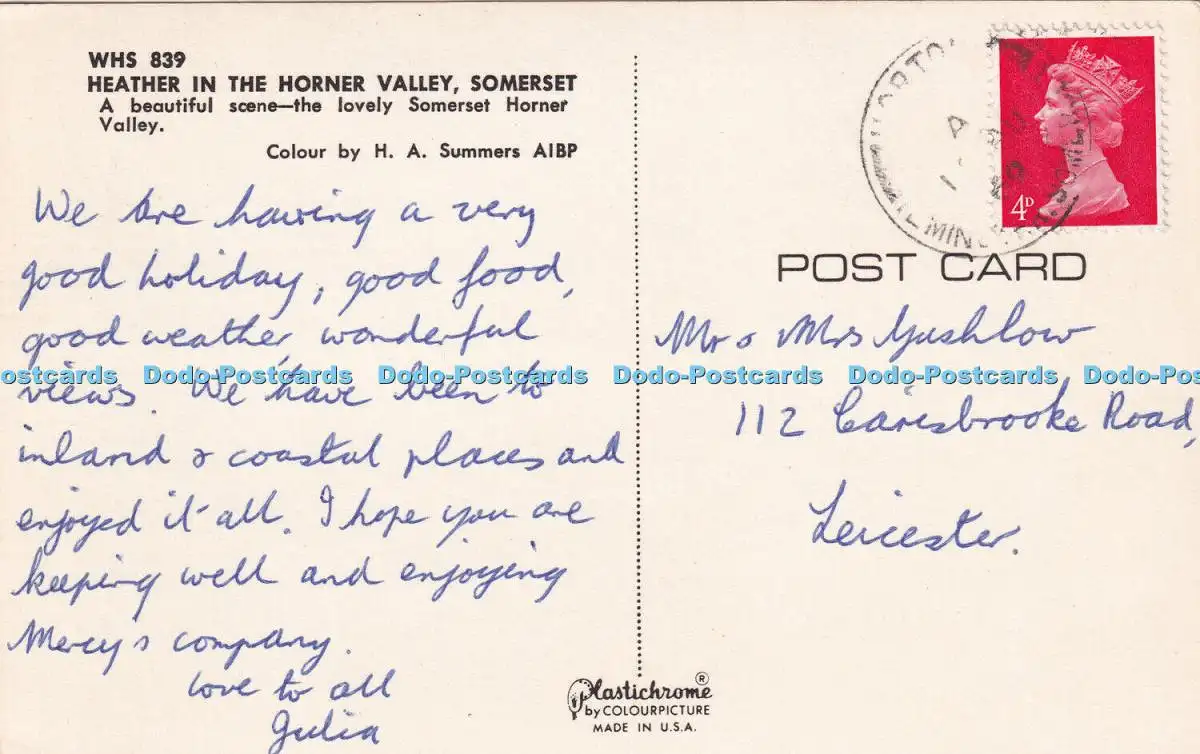 WHS 839
HEATHER IN THE HORNER VALLEY, SOMERSET
A beautiful scene—the lovely Somerset Horner
Valley.
Colour by H. A. Summers AIBP
We are having a very
good holiday, good food,
good weather, wonderful
views. We have been to
inland & coastal places and
enjoyed it all. I hope you are
keeping well and enjoying
Mercy's company.
Love to all
Julia
4D
POST CARD
Mr & Mrs
112 Carisbrooke Road,
Leicester.
Plastichrome ®
by COLOURPICTURE
MADE IN U.S.A.
ostcards Dodo-Postcards Dodo-Postcards Dodo-Postcards Dodo-Postcards Dodo-Pos